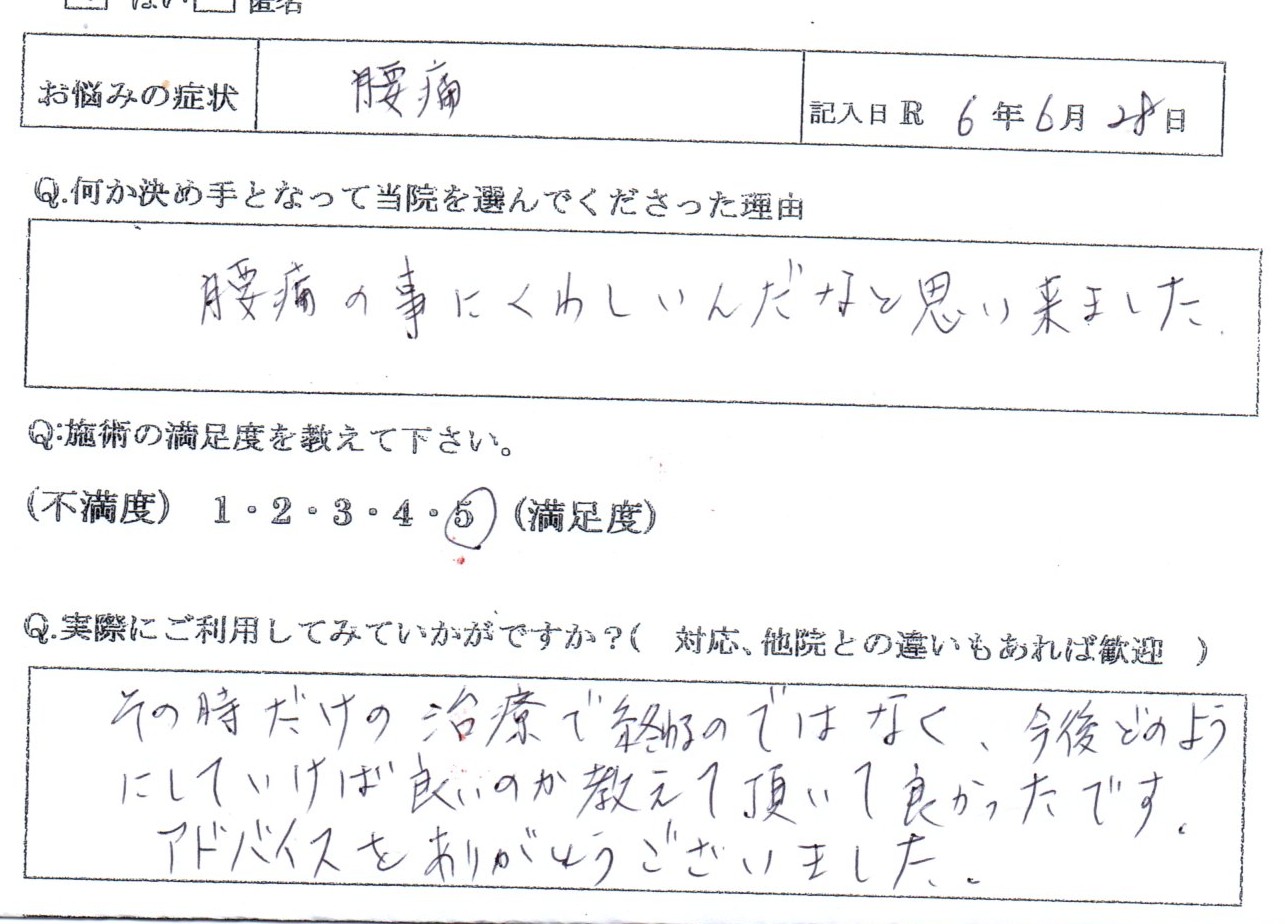 はい 匿名
お悩みの症状 腰痛 記入日 R 6年6月28日
Q.何か決め手となって当院を選んでくださった理由
腰痛の事にくわしいんだなと思い来ました.
Q:施術の満足度を教えて下さい。
(不満度) 1・2・3・4・5 (満足度)
Q.実際にご利用してみていかがですか?( 対応、他院との違いもあれば歓迎 )
その時だけの治療で終わるのではなく、今後どのよう
にしていけば良いのか教えて頂いて良かったです.
アドバイスをありがとうございました.